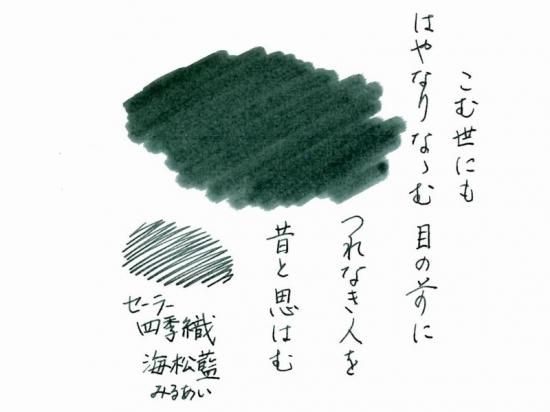 こむ世にも
はやなりなゝむ 目の前に
つれなき人を
昔と思はむ
セーラー
四季織
海松藍
みるあい